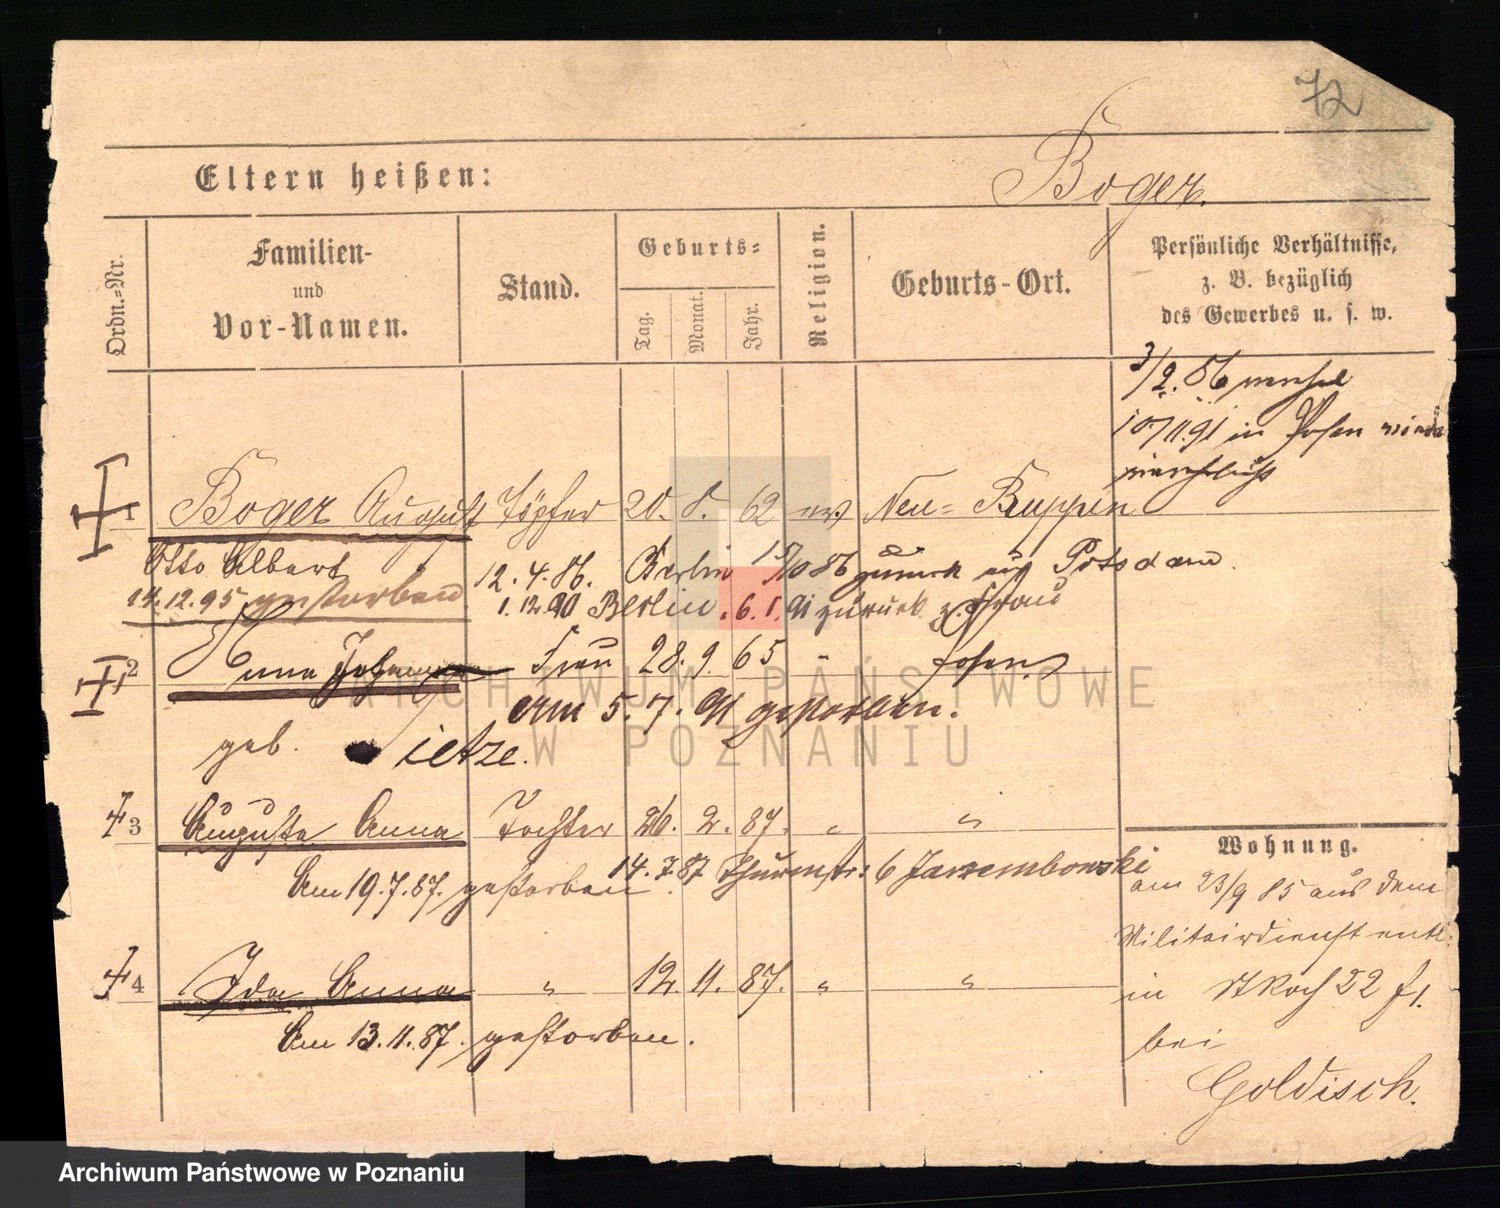 72
Eltern heißen:
Boger.
Ordn.-Nr.
Familien-
und
Vor-Namen.
Stand.
Geburts-
Tag.
Monat.
Jahr.
Religion.
Geburts-Ort.
Persönliche Verhältnisse,
z. B. bezüglich
des Gewerbes u. s. w.
3/2. 86
10/11.91 in Posen
1 Boger August Töpfer 20. 8. 62 ev Neu-Ruppin
Otto Albert 12. 4. 86. Berlin 15/10 86 zurück aus Potsdam.
14.12.95 gestorben 1. 12. 90 Berlin. 6. 1. 91 zurück z. Frau
2 Anna Frau 28. 9. 65 " Posen
Am 5. 7. 91 gestorben.
geb. ietze.
3 Auguste Anna Tochter 26. 2. 87. " "
14. 7. 87 Thurmstr: 6
Am 19. 7. 87. gestorben.
4 Ida Anna " 12. 11. 87. " "
Am 13. 11. 87. gestorben.
Wohnung.
am 23/9 85 aus dem
Militairdienst entl.
in 22
bei
Goldisch.
ARCHIWUM PAŃSTWOWE
W POZNANIU
Archiwum Państwowe w Poznaniu